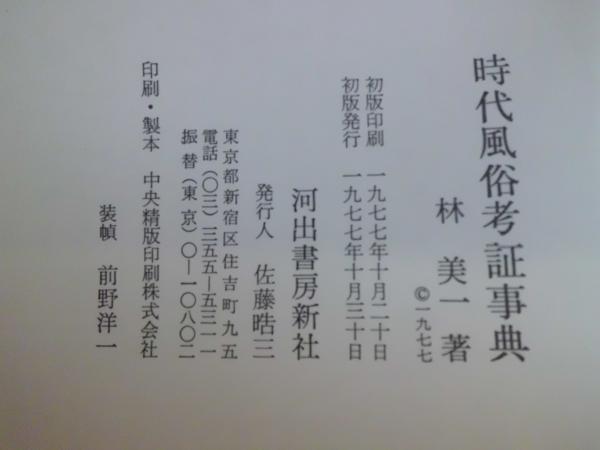 時代風俗考証事典
林 美一 著
©一九七七
初版印刷 一九七七年十月二十日
初版発行 一九七七年十月三十日
河出書房新社
発行人 佐藤晧三
東京都新宿区住吉町九五
電話(〇三)三五五―五三一一
振替(東京)〇―一〇八〇二
印刷・製本 中央精版印刷株式会社
装幀 前野洋一